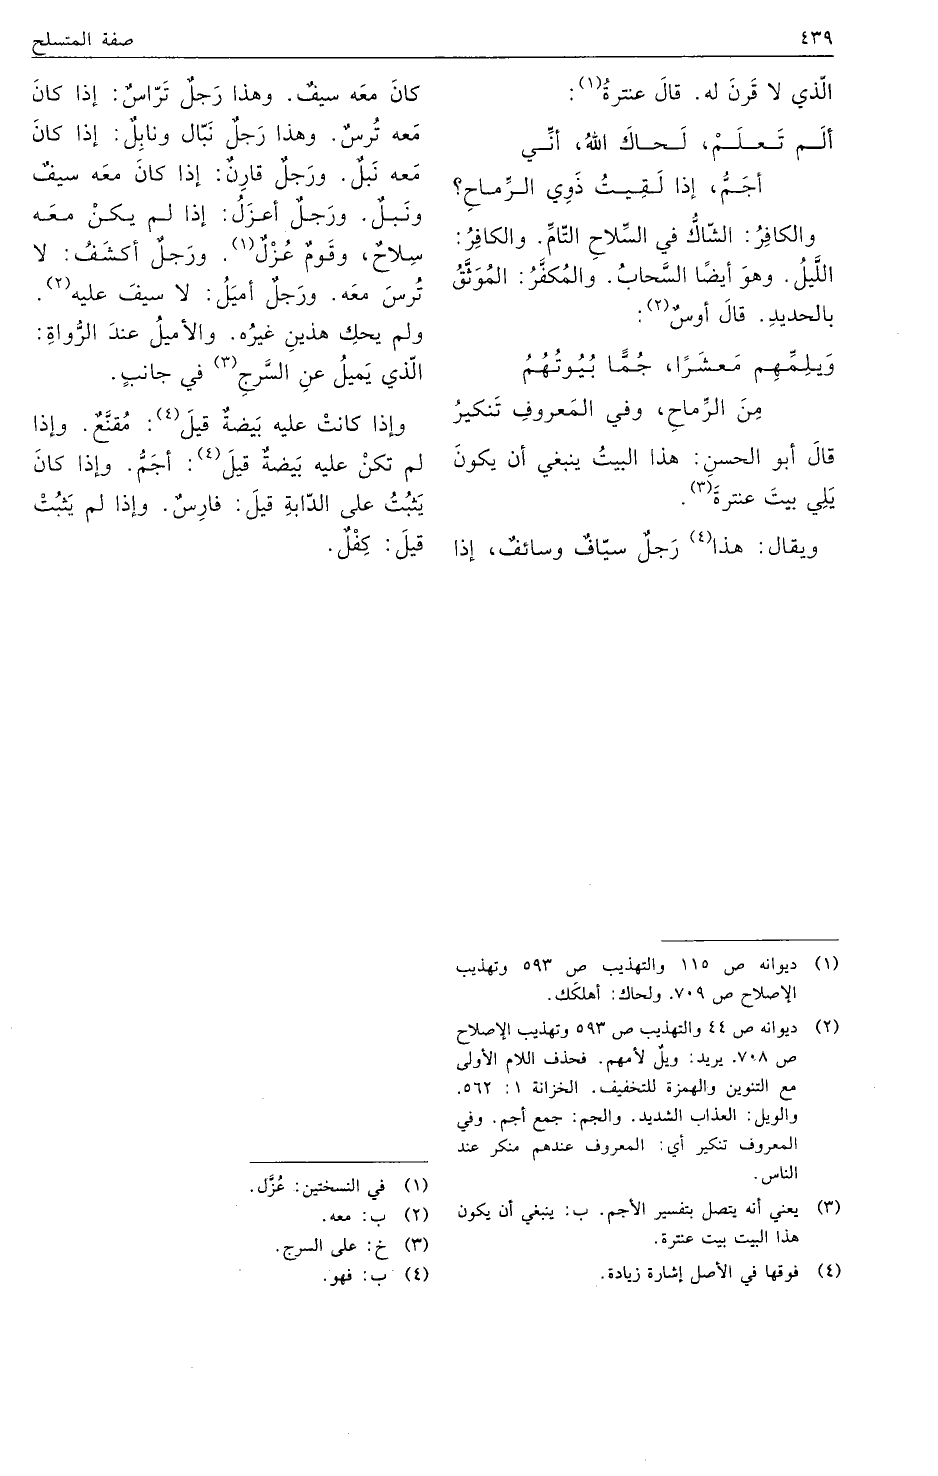 ٤٣٩
صفة المتسلح
الّذي لا قَرنَ له. قالَ عنترةُ(١):
ألَـم تَـعـلَـمْ، لَـحـاكَ اللهُ، أنِّـي
أجَـمُّ، إذا لَـقِـيـتُ ذَوِي الـرِّمـاحِ؟
والكافِرُ: الشّاكُّ في السِّلاحِ التّامِّ. والكافِرُ:
اللَّيلُ. وهوَ أيضًا السَّحابُ. والمُكفَّرُ: المُوَثَّقُ
بالحديدِ. قالَ أوسٌ(٢):
وَيـلِـمِّـهِـم مَـعـشَـرًا، جُـمًّـا بُـيُـوتُـهُـمُ
مِنَ الرِّماحِ، وفي المَعروفِ تَنكيرُ
قالَ أبو الحسنِ: هذا البيتُ ينبغي أن يكونَ
يَلِي بيتَ عنترةَ(٣).
ويقال: هذا(٤) رَجلٌ سيّافٌ وسائفٌ، إذا
كانَ معَه سيفٌ. وهذا رَجلٌ تَرّاسٌ: إذا كانَ
مَعه تُرسٌ. وهذا رَجلٌ نَبّال ونابِلٌ: إذا كانَ
مَعه نَبلٌ. ورَجلٌ قارِنٌ: إذا كانَ معَه سيفٌ
ونَـبـلٌ. ورَجـلٌ أعـزَلُ: إذا لـم يـكـنْ مـعَـه
سِلاحٌ، وقَومٌ عُزْلٌ(١). ورَجلٌ أكشَفُ: لا
تُرسَ مَعه. ورَجلٌ أميَلُ: لا سيفَ عليه(٢).
ولم يحكِ هذينِ غيرُه. والأميلُ عندَ الرُّواةِ:
الّذي يَميلُ عنِ السَّرجِ(٣) في جانبٍ.
وإذا كانتْ عليه بَيضةٌ قيلَ(٤): مُقنَّعٌ. وإذا
لم تكنْ عليه بَيضةٌ قيلَ(٤): أجَمُّ. وإذا كانَ
يَثبُتُ على الدّابةِ قيلَ: فارِسٌ. وإذا لم يَثبُتْ
قيلَ: كِفْلٌ.
(١) ديوانه ص ١١٥ والتهذيب ص ٥٩٣ وتهذيب
الإصلاح ص ٧٠٩. ولحاك: أهلكَك.
(٢) ديوانه ص ٤٤ والتهذيب ص ٥٩٣ وتهذيب الإصلاح
ص ٧٠٨. يريد: ويلٌ لأمهم. فحذف اللام الأولى
مع التنوين والهمزة للتخفيف. الخزانة ١: ٥٦٢.
والويل: العذاب الشديد. والجم: جمع أجم. وفي
المعروف تنكير أي: المعروف عندهم منكر عند
الناس.
(٣) يعني أنه يتصل بتفسير الأجم. ب: ينبغي أن يكون
هذا البيت بيت عنترة.
(٤) فوقها في الأصل إشارة زيادة.
(١) في النسختين: عُزَّل.
(٢) ب: معه.
(٣) خ: على السرج.
(٤) ب: فهو.